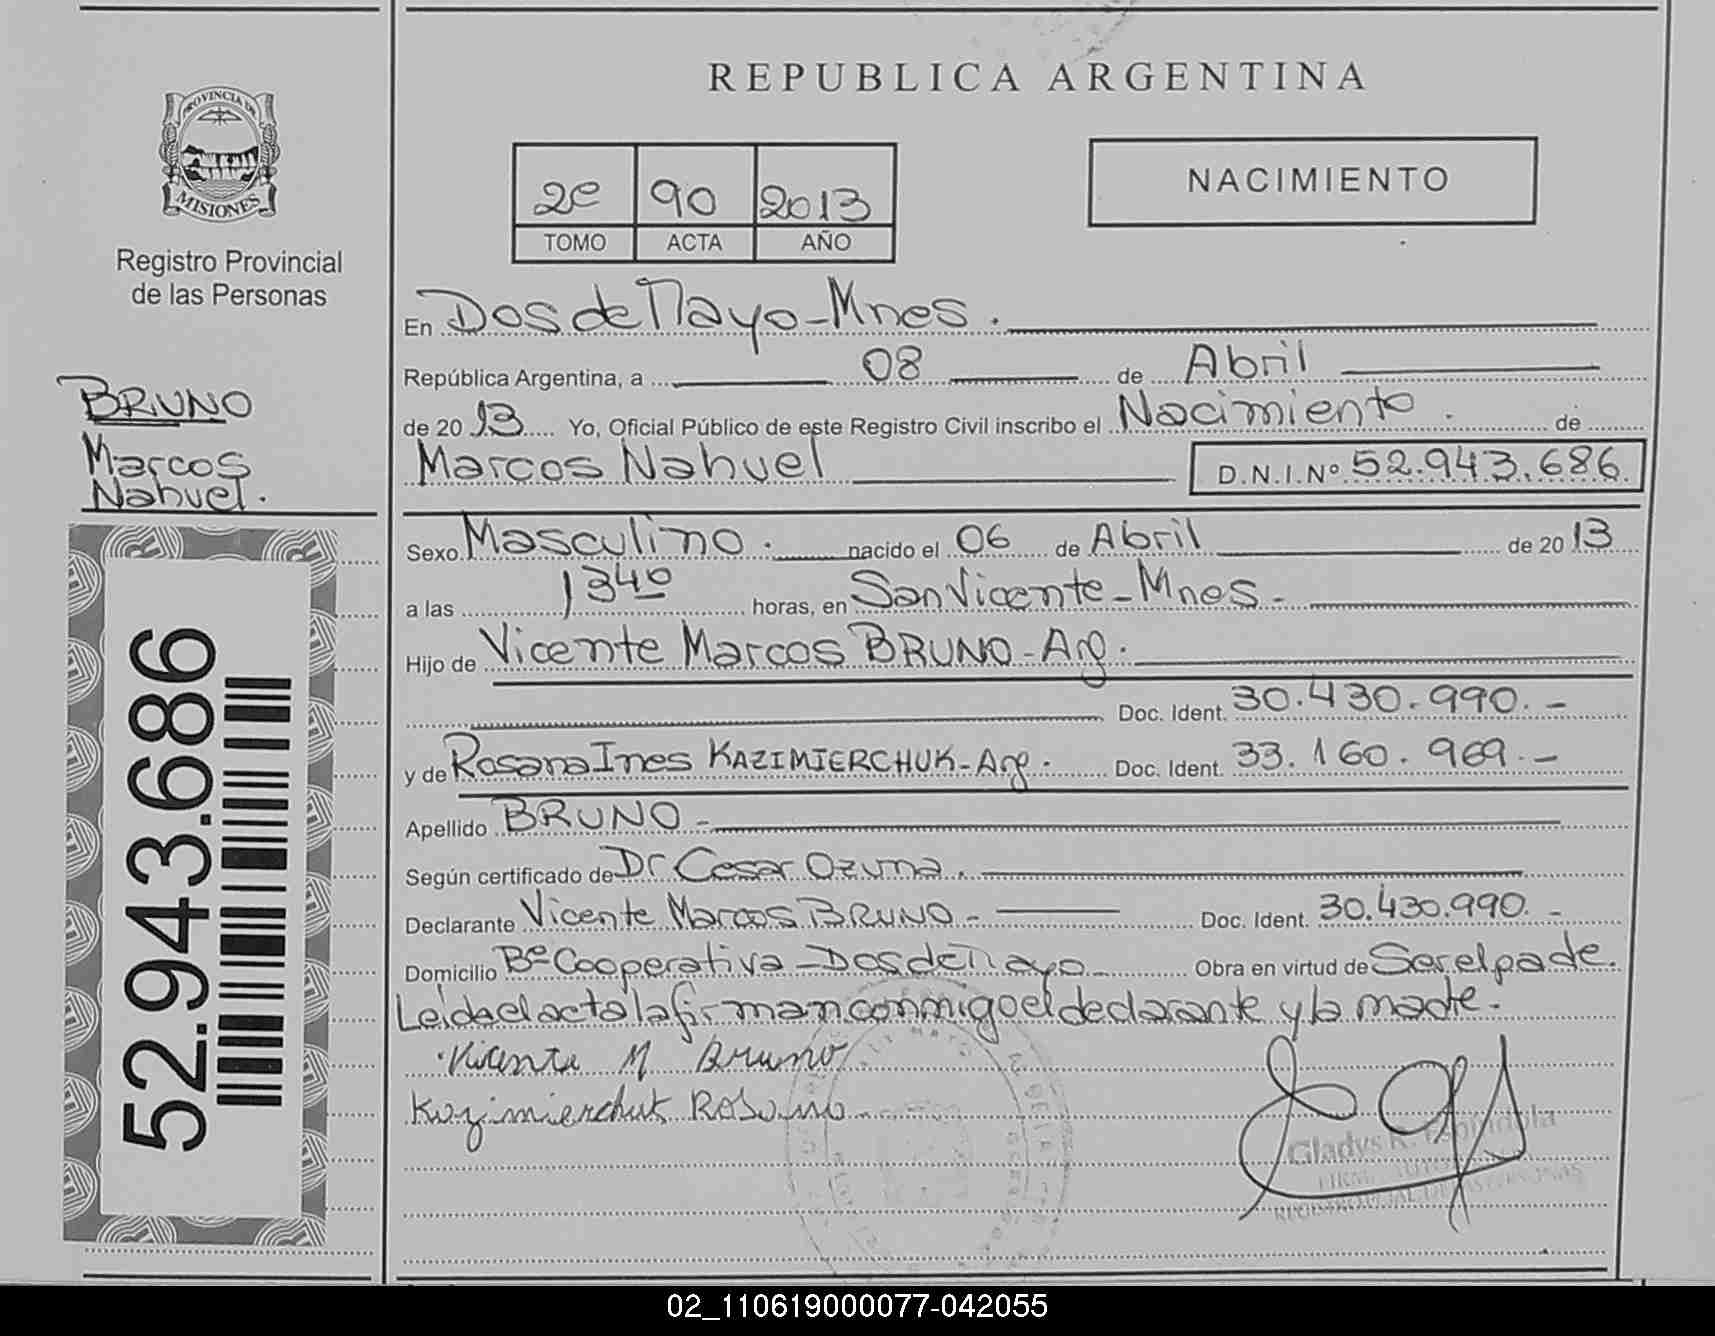 REPUBLICA ARGENTINA
PROVINCIA DE
MISIONES
Registro Provincial
de las Personas
2º 90 2013
TOMO ACTA AÑO
NACIMIENTO
BRUNO
Marcos
Nahuel.
52.943.686
En Dos de Mayo-Mnes.
República Argentina, a 08 de Abril
de 2013 Yo, Oficial Público de este Registro Civil inscribo el Nacimiento. de
Marcos Nahuel D.N.I.Nº 52.943.686.
Sexo Masculino. nacido el 06 de Abril de 2013
a las 1340 horas, en San Vicente-Mnes-
Hijo de Vicente Marcos BRUNO-Arg.
Doc. Ident. 30.430.990.-
y de Rosana Ines KAZIMIERCHUK-Arg. Doc. Ident. 33.160.969.-
Apellido BRUNO-
Según certificado de Dr. Cesar Ozuna.
Declarante Vicente Marcos BRUNO- Doc. Ident. 30.430.990.-
Domicilio Bº Cooperativa-Dos de Mayo- Obra en virtud de Ser el padre.
Leida el acta la firman conmigo el declarante y la madre-
Vicente M Bruno
Kazimierchuk Rosana
Gladys R. Espindola
02_110619000077-042055